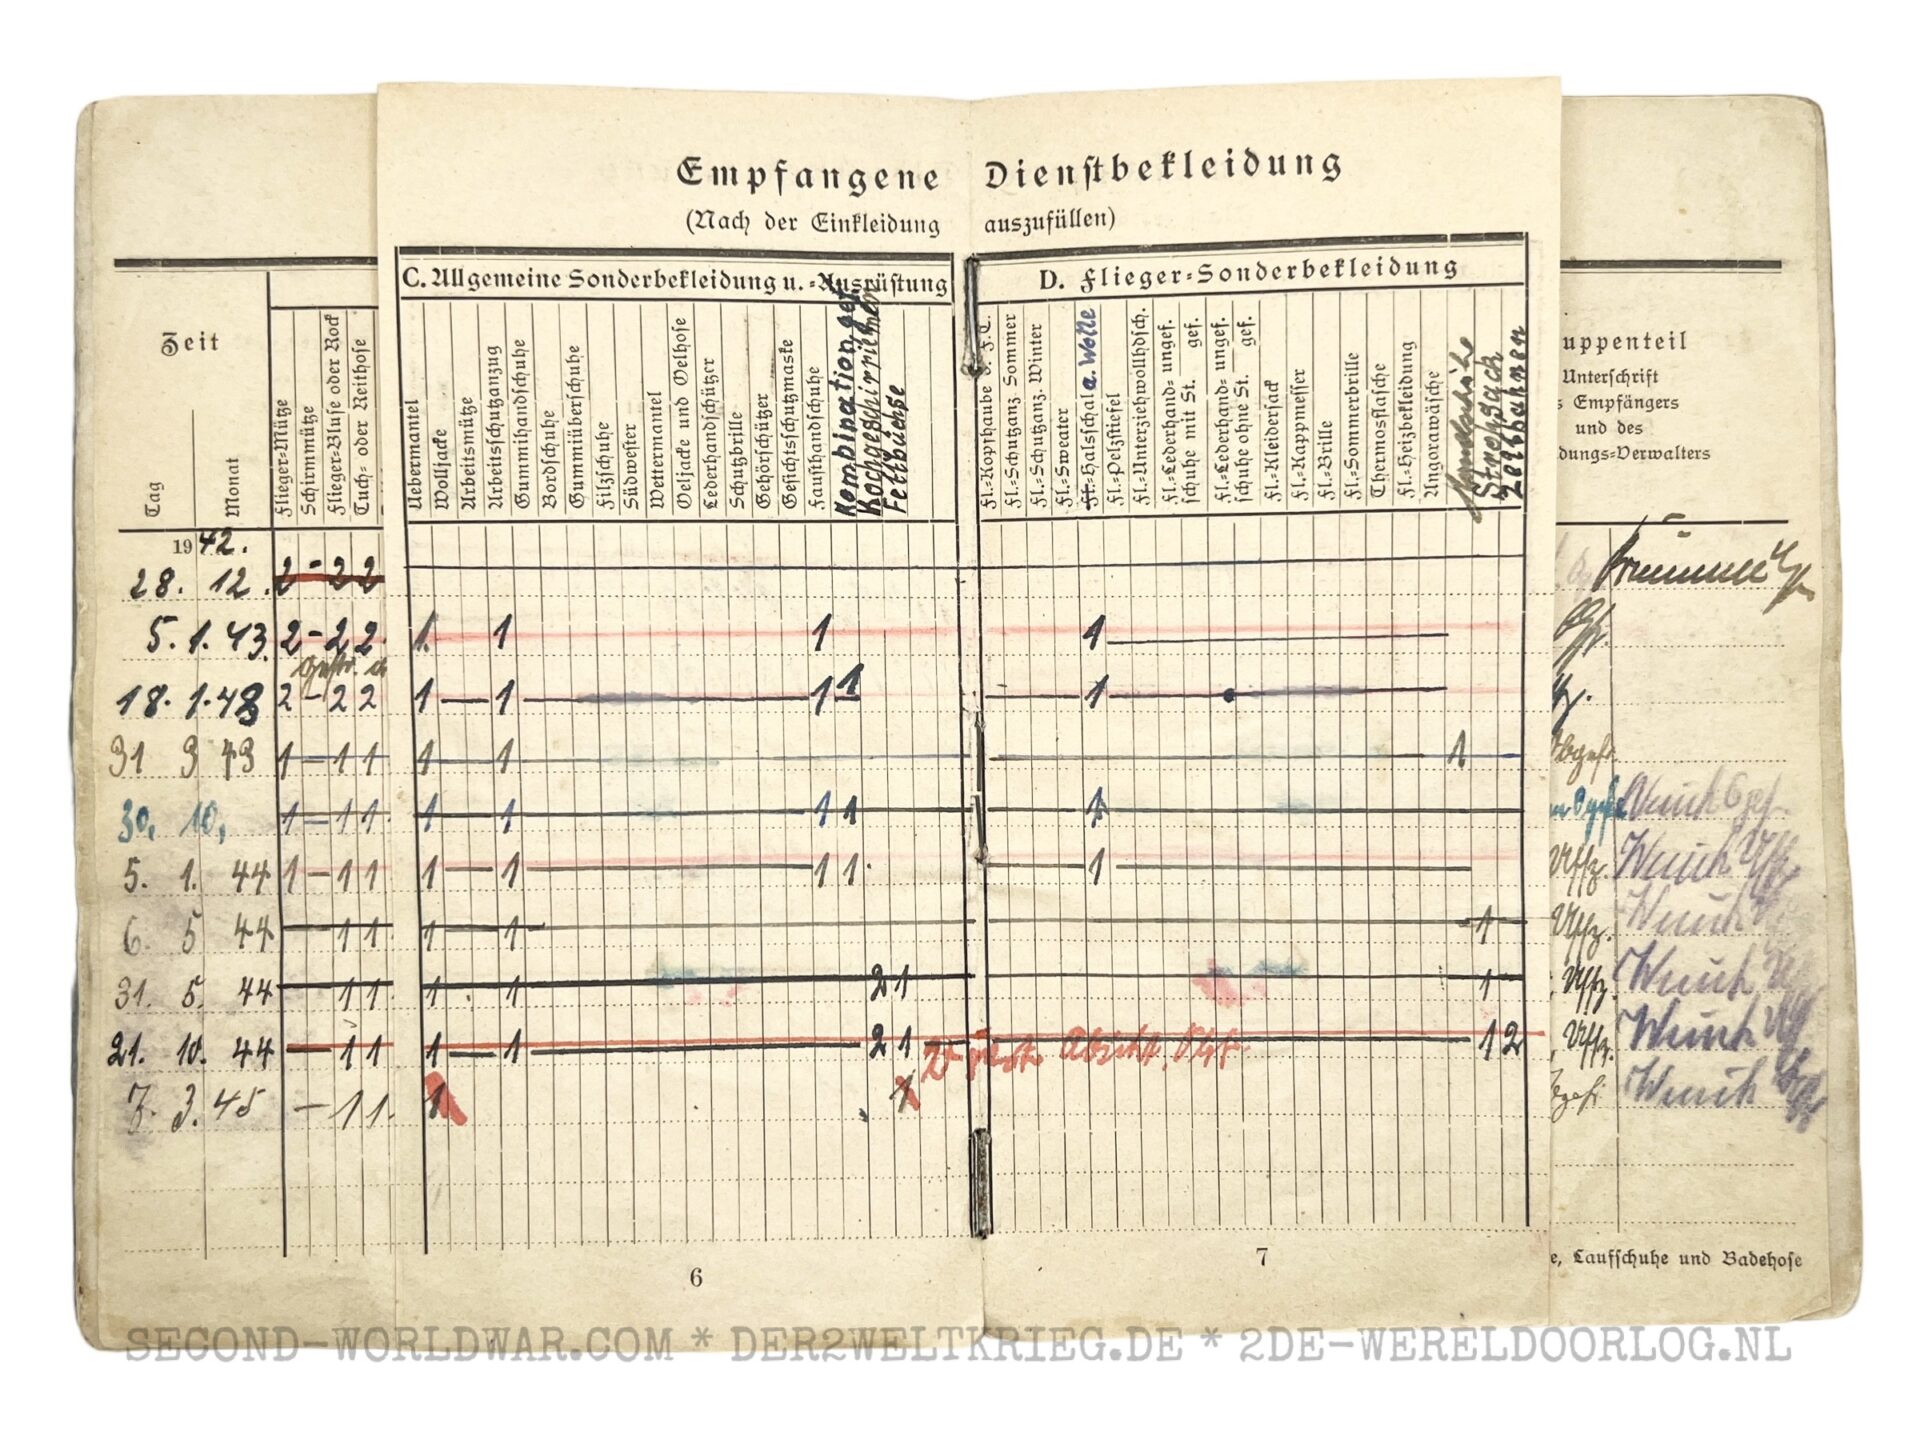 Empfangene Dienstbekleidung
(Nach der Einkleidung auszufüllen)
C. Allgemeine Sonderbekleidung u. =Ausrüstung
D. Flieger=Sonderbekleidung
Zeit
Tag
Monat
Flieger=Mütze
Schirmmütze
Flieger=Bluse oder Rock
Tuch= oder Reithose
Uebermantel
Wolljacke
Arbeitsmütze
Arbeitsschutzanzug
Gummihandschuhe
Bordschuhe
Gummiüberschuhe
Filzschuhe
Südwester
Wettermantel
Oeljacke und Oelhose
Lederhandschützer
Schutzbrille
Gehörschützer
Gesichtsschutzmaske
Fausthandschuhe
Kombination gef.
Kochgeschirriemen
Fettbüchse
Fl.=Kopfhaube d. F.T.
Fl.=Schutzanz. Sommer
Fl.=Schutzanz. Winter
Fl.=Sweater
Fl.=Halsschal a. Wolle
Fl.=Pelzstiefel
Fl.=Unterziehwollhdsch.
Fl.=Lederhand= ungef.
schuhe mit St. gef.
Fl.=Lederhand= ungef.
schuhe ohne St. gef.
Fl.=Kleidersack
Fl.=Kappmesser
Fl.=Brille
Fl.=Sommerbrille
Thermosflasche
Fl.=Heizbekleidung
Angorawäsche
Strohsack
Zeltbahnen
uppenteil
Unterschrift
s Empfängers
und des
dungs=Verwalters
1942.
28. 12. 2 - 2 2
5. 1. 43. 2 - 2 2 1 1 1 1
18. 1. 43 2 - 2 2 1 1 1 1 1
31 3 43 1 - 1 1 1 1 1
30. 10. 1 - 1 1 1 1 1 1 1
5. 1. 44 1 - 1 1 1 1 1 1 1 Uffz.
6. 5 44 - 1 1 1 1 1 Uffz.
31. 5. 44 - 1 1 1 1 2 1 1 Uffz.
21. 10. 44 - 1 1 1 1 2 1 1 2 Uffz.
7. 3. 45 - 1 1 1 1
6
7
e, Laufschuhe und Badehose
SECOND-WORLDWAR.COM * DER2WELTKRIEG.DE * 2DE-WERELDOORLOG.NL